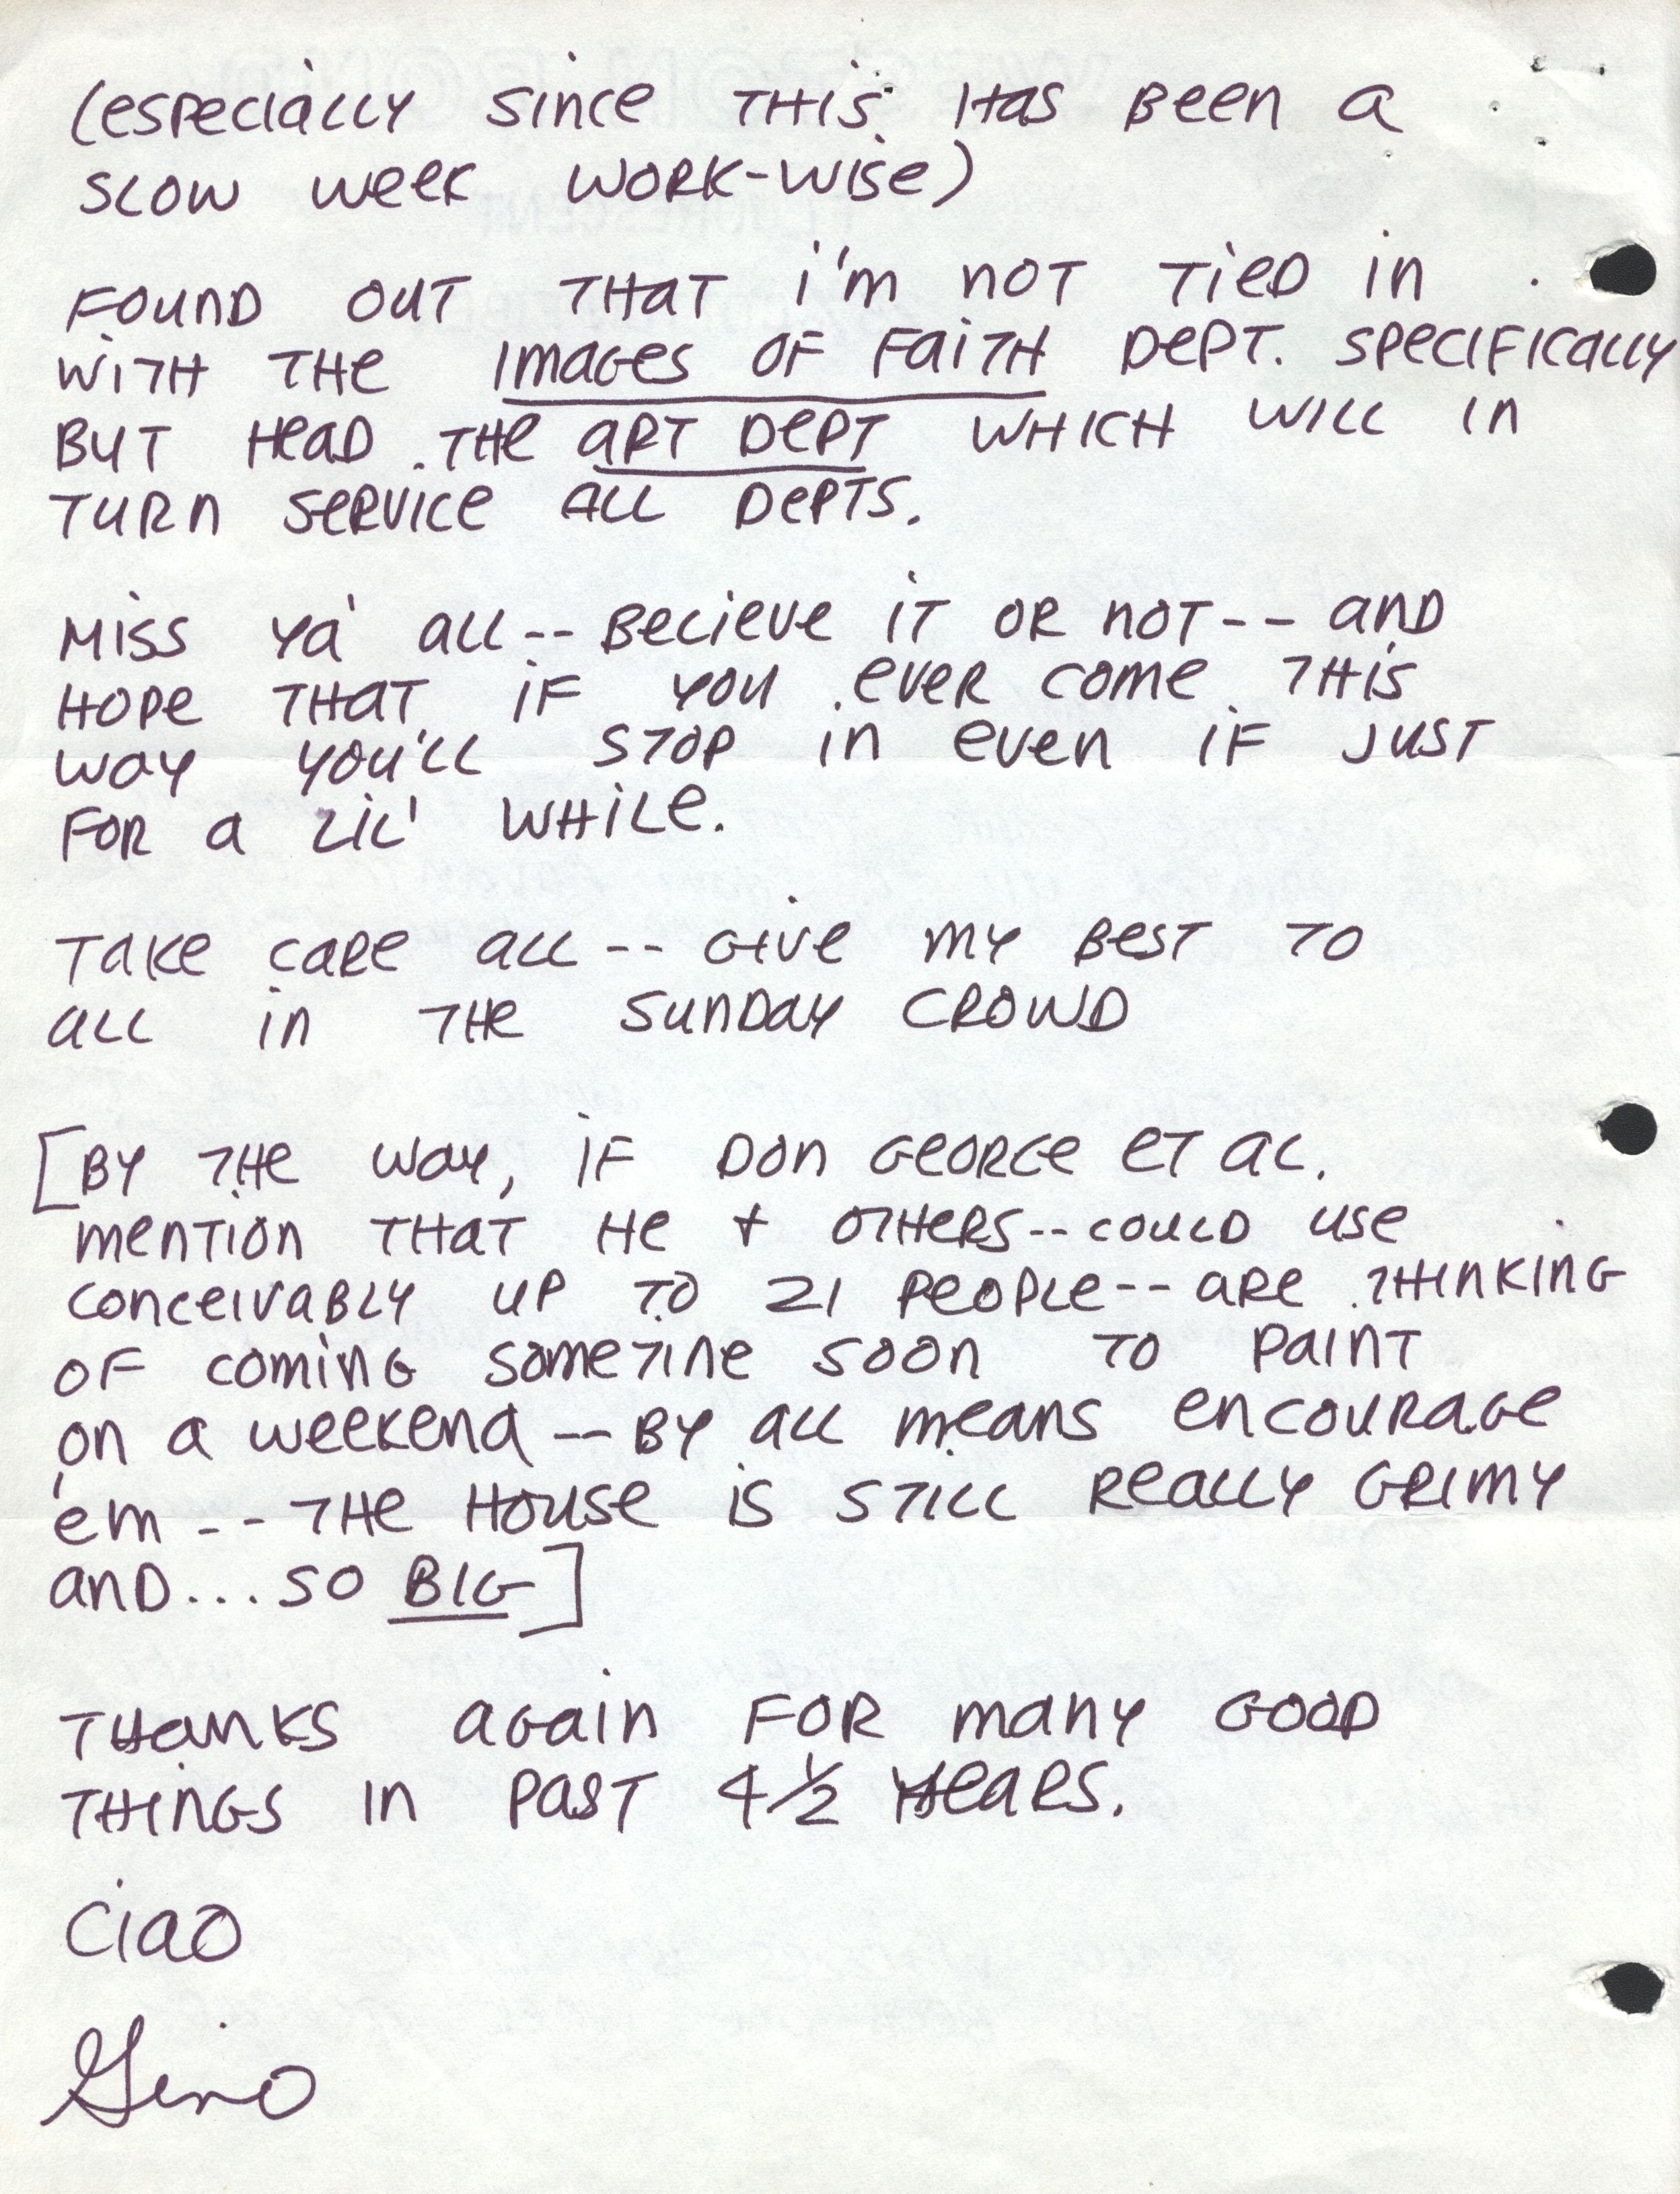 (especially since this has been a
slow week work-wise)
Found out that i'm not tied in
with the Images of Faith Dept. specifically
but head the art dept which will in
turn service all depts.
Miss ya' all -- believe it or not -- and
hope that if you ever come this
way you'll stop in even if just
for a lil' while.
Take care all -- give my best to
all in the Sunday crowd
[By the way, if Don George et al.
mention that he + others -- could use
conceivably up to 21 people -- are thinking
of coming sometine soon to paint
on a weekend -- by all means encourage
'em -- the house is still really grimy
and... so BIG]
Thanks again for many good
things in past 4½ years.
Ciao
Gino